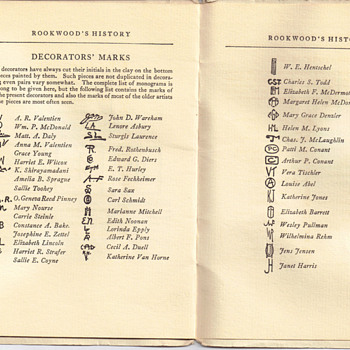 ROOKWOOD'S HISTORY
DECORATORS' MARKS
decorators have always cut their initials in the clay on the bottom
pieces painted by them. Such pieces are not duplicated in decora-
ing even pairs vary somewhat. The complete list of monograms is
long to be given here, but the following list contains the marks of
the present decorators and also the marks of most of the older artists
pieces are most often seen.
A. R. Valentien
Wm. P. McDonald
Matt. A. Daly
Anna M. Valentien
Grace Young
Harriet E. Wilcox
K. Shirayamadani
Amelia B. Sprague
Sallie Toohey
O. Geneva Reed Pinney
Mary Nourse
Carrie Steinle
Constance A. Baker
Josephine E. Zettel
Elizabeth Lincoln
Harriet R. Strafer
Sallie E. Coyne
John D. Wareham
Lenore Asbury
Sturgis Laurence
Fred. Rothenbusch
Edward G. Diers
E. T. Hurley
Rose Fechheimer
Sara Sax
Carl Schmidt
Marianne Mitchell
Edith Noonan
Lorinda Epply
Albert F. Pons
Cecil A. Duell
Katherine Van Horne
ROOKWOOD'S HIST
W. E. Hentschel
Charles S. Todd
Elizabeth F. McDermo
Margaret Helen McDo
Mary Grace Denzler
Helen M. Lyons
Chas. J. McLaughlin
Patti M. Conant
Arthur P. Conant
Vera Tischler
Louise Abel
Katherine Jones
Elizabeth Barrett
Wesley Pullman
Wilhelmina Rehm
Jens Jensen
Janet Harris